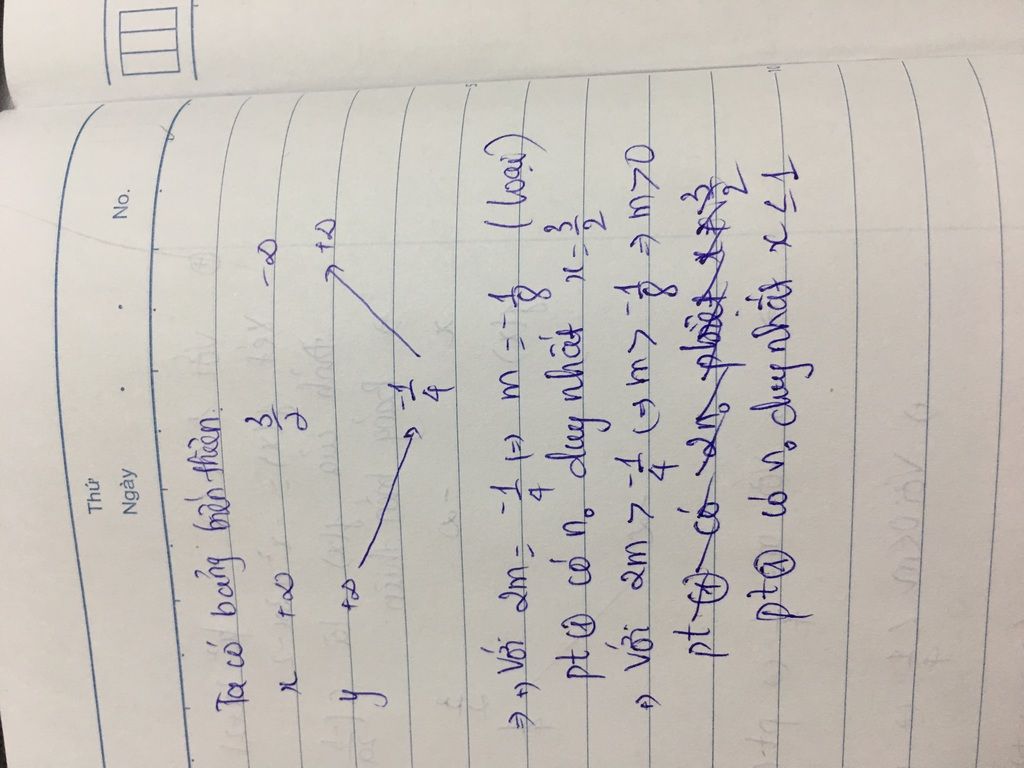 Thứ
Ngày . . No.
Ta có bảng biến thiên.
x +∞ 3/2 -∞
y +∞ -1/4 +∞
⇒ +) Với 2m = -1/4 (=) m = -1/8 (loại)
pt ① có n₀ duy nhất x = 3/2
+) Với 2m > -1/4 (=) m > -1/8 ⇒ m > 0
pt ① có 2 n₀ phbiệt x ≠ 3/2
pt ① có n₀ duy nhất x ≤ 1
5
10